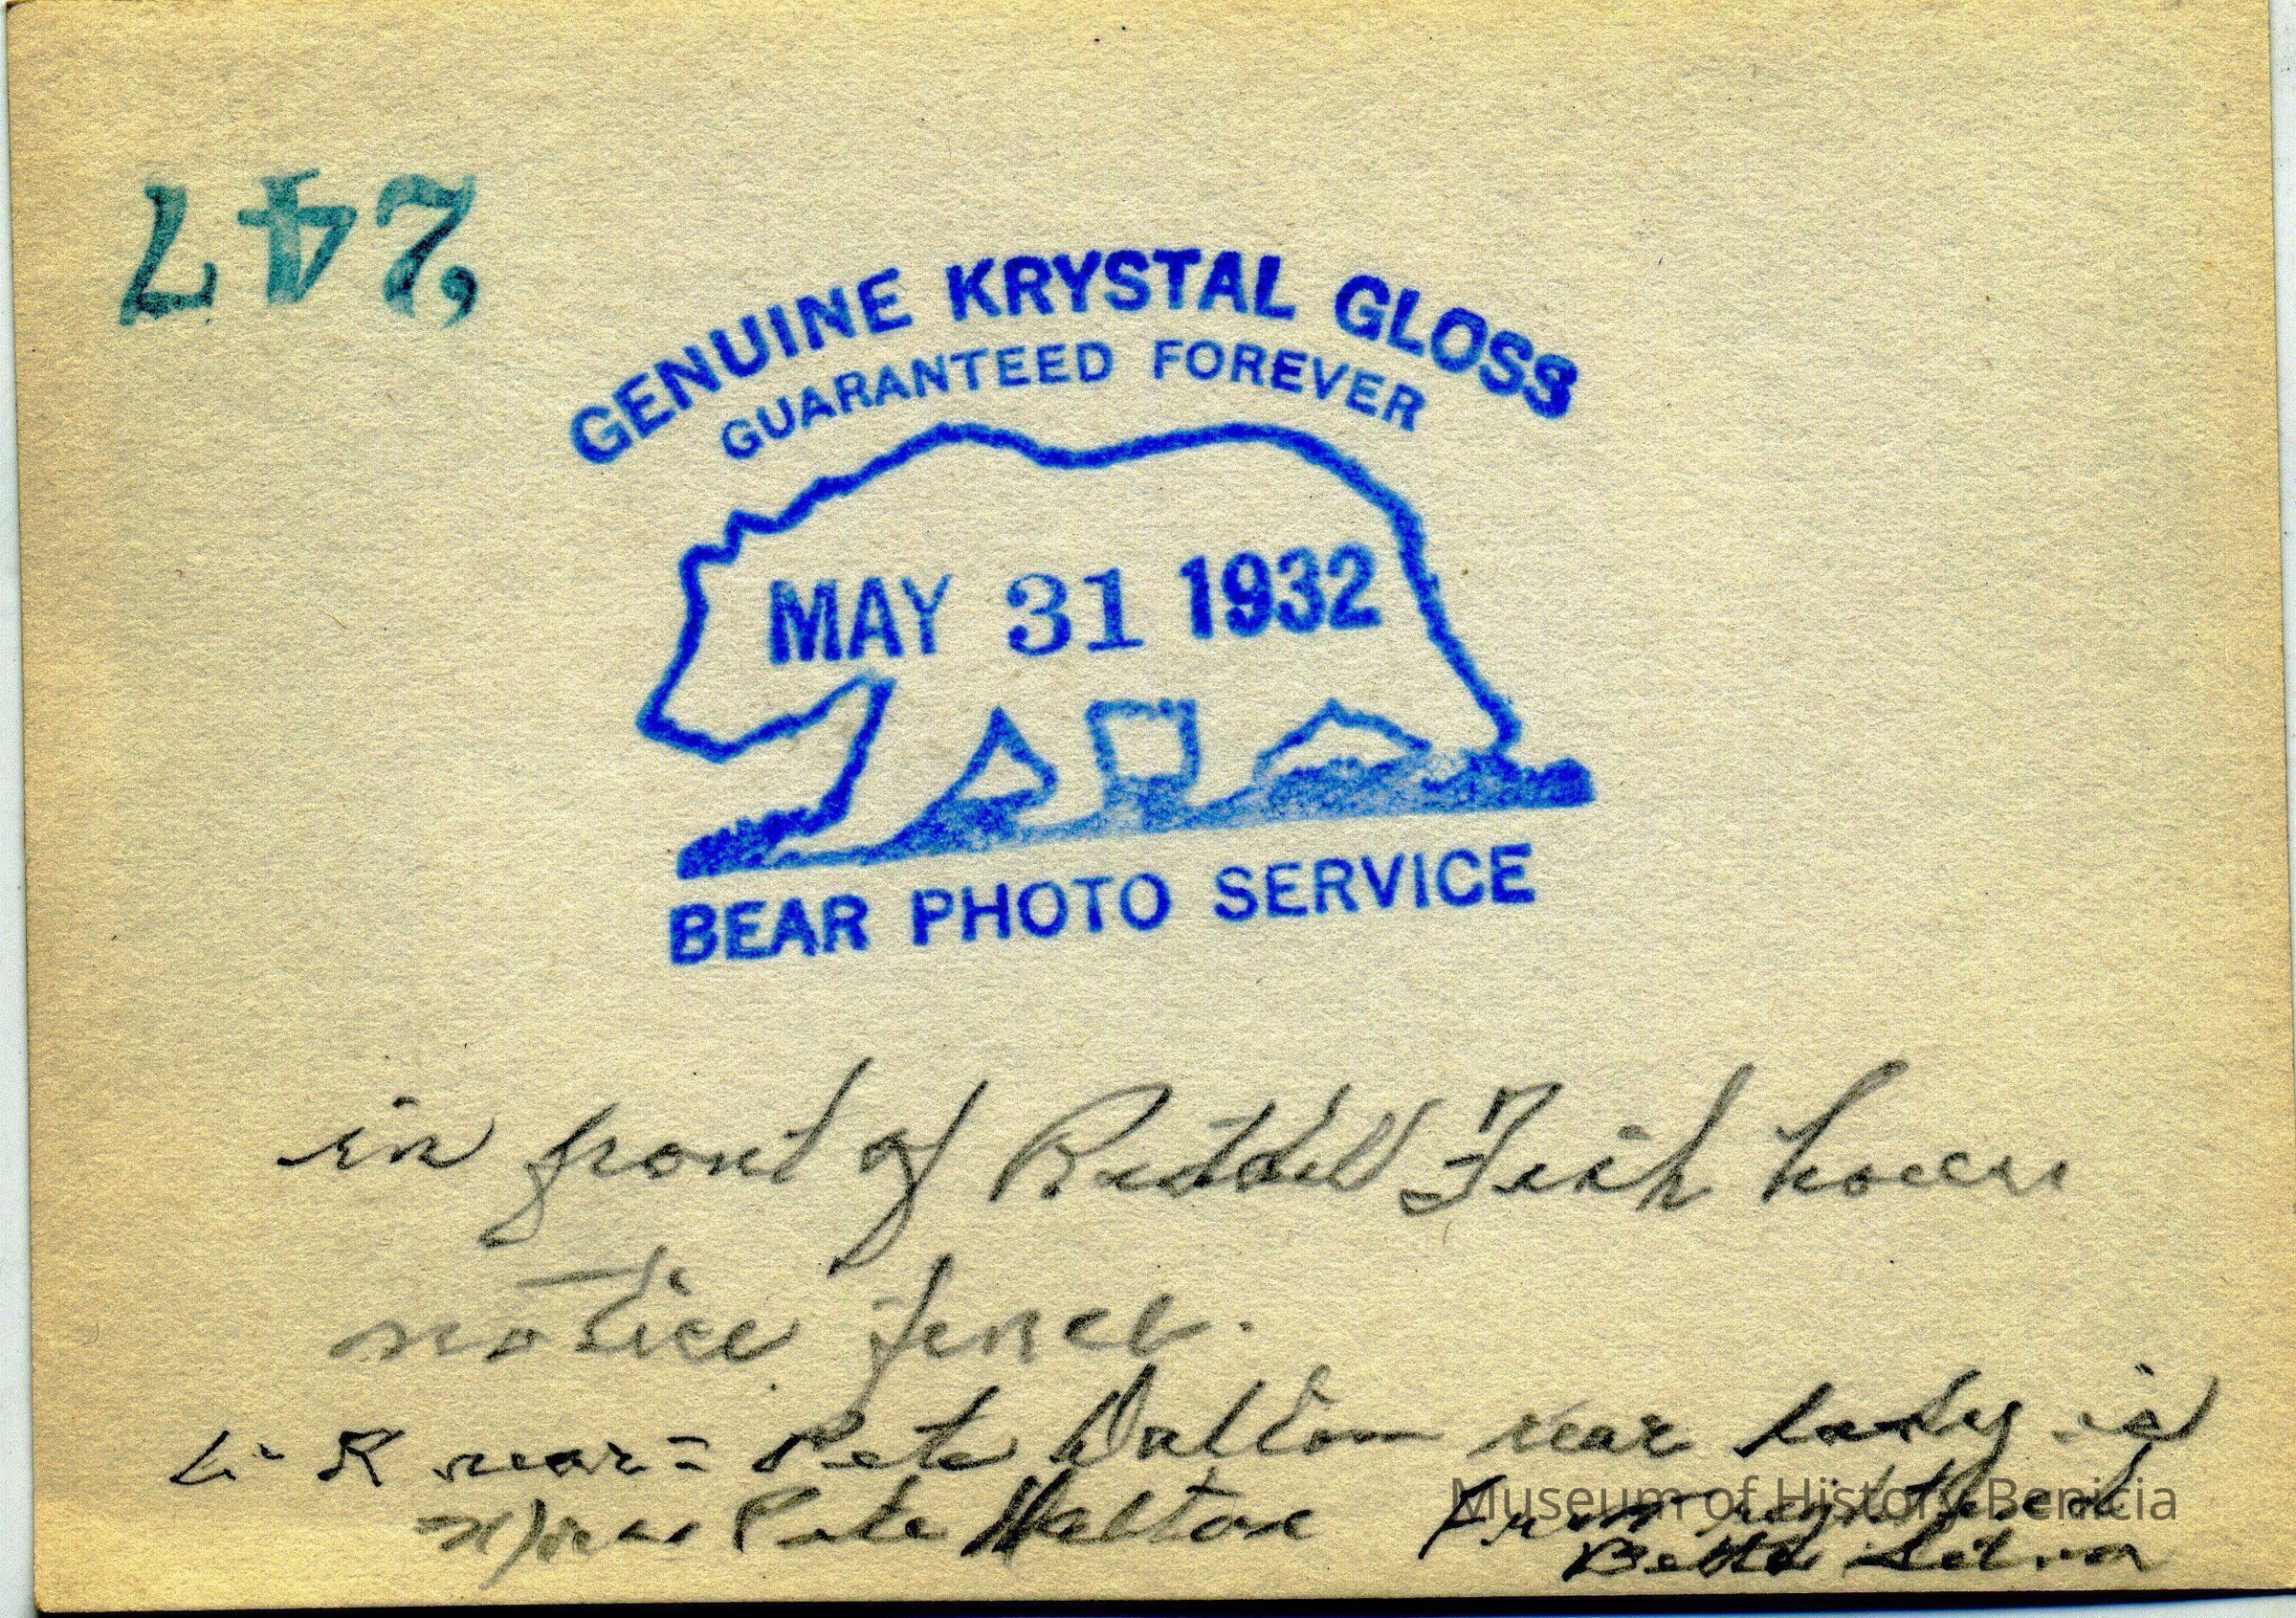 247
GENUINE KRYSTAL GLOSS
GUARANTEED FOREVER
MAY 31 1932
BEAR PHOTO SERVICE
in front of Fish house
notice fence.
L- R rear = Pete Dalton rear lady is
Pete front right
Silva
Museum of History Benicia